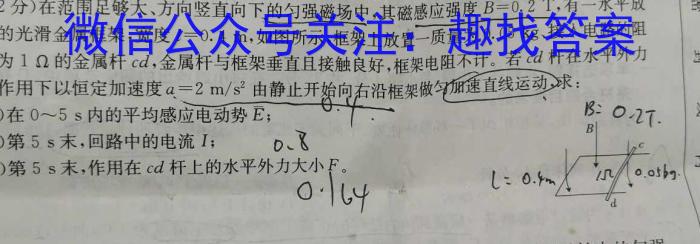 2分)在范围足够大、方向竖直向下的匀强磁场中,其磁感应强度B=0.2 T,有一水平放
的光滑金属框架,宽度
微信公众号关注:趣找答案
为1 Ω的金属杆cd,金属杆与框架垂直且接触良好,框架电阻不计。若cd杆在水平外力
作用下以恒定加速度a=2 m/s² 由静止开始向右沿框架做匀加速直线运动,求:
)在0~5 s内的平均感应电动势E̅;
0.4
)第5 s末,回路中的电流I;
0.8
)第5 s末,作用在cd杆上的水平外力大小F。
0.164
B= 0.2T.
B
c
L= 0.4m
1Ω
0.05kg.
d